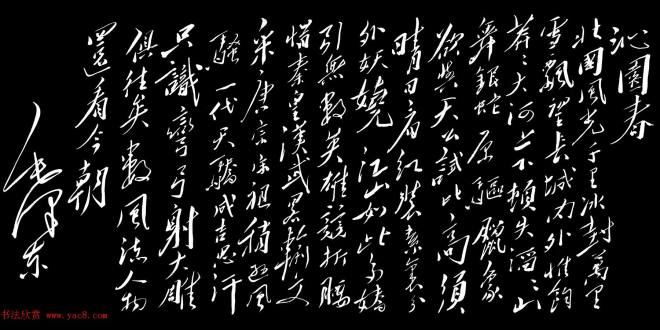 沁園春
北國風光千里冰封萬里
雪飄望長城內外惟餘
莽〻大河上下頓失滔〻山
舞銀蛇原驅臘象
欲與天公試比高須
晴日看紅裝素裹分
外妖嬈江山如此多嬌
引無數英雄競折腰
惜秦皇漢武略輸文
采唐宗宋祖稍遜風
騷一代天驕成吉思汗
只識彎弓射大雕
俱往矣數風流人物
還看今朝
毛澤東
书法欣赏 www.yac8.com